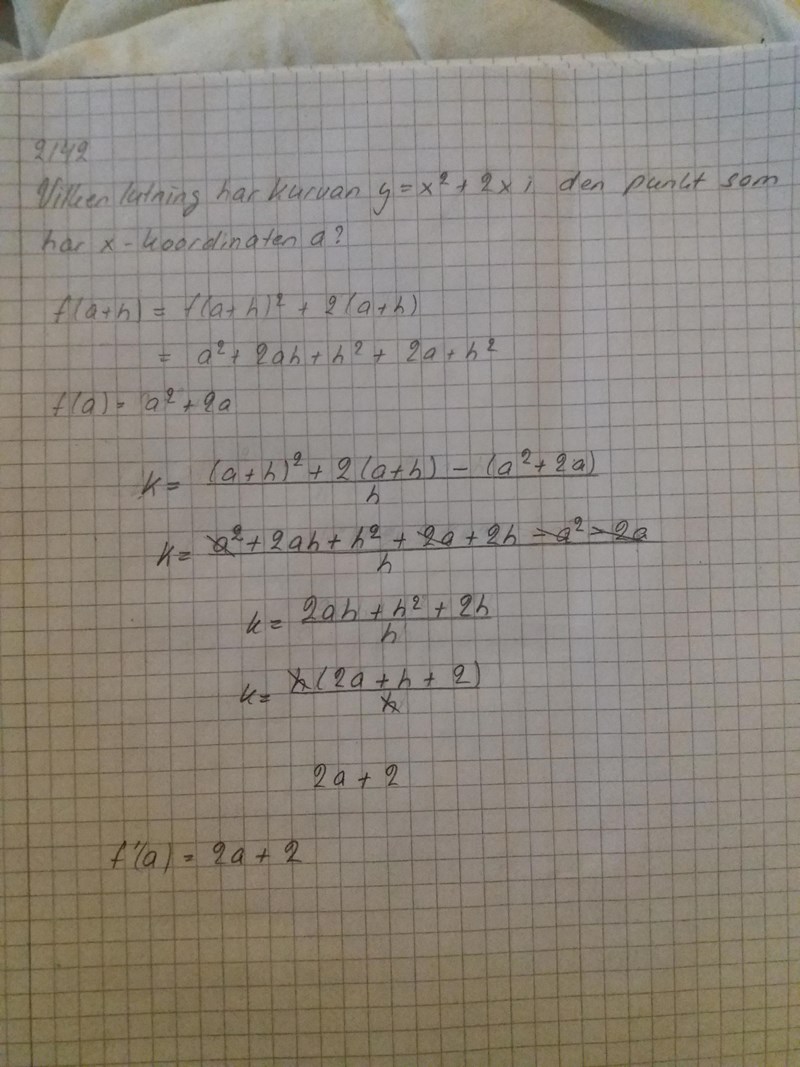 2142
Vilken lutning har kurvan y = x² + 2x i den punkt som
har x-koordinaten a?
f(a+h) = f(a+h)² + 2(a+h)
= a² + 2ah + h² + 2a + h²
f(a) = a² + 2a
k = (a+h)² + 2(a+h) - (a² + 2a) / h
k = a² + 2ah + h² + 2a + 2h - a² - 2a / h
k = 2ah + h² + 2h / h
k = h(2a + h + 2) / h
2a + 2
f'(a) = 2a + 2